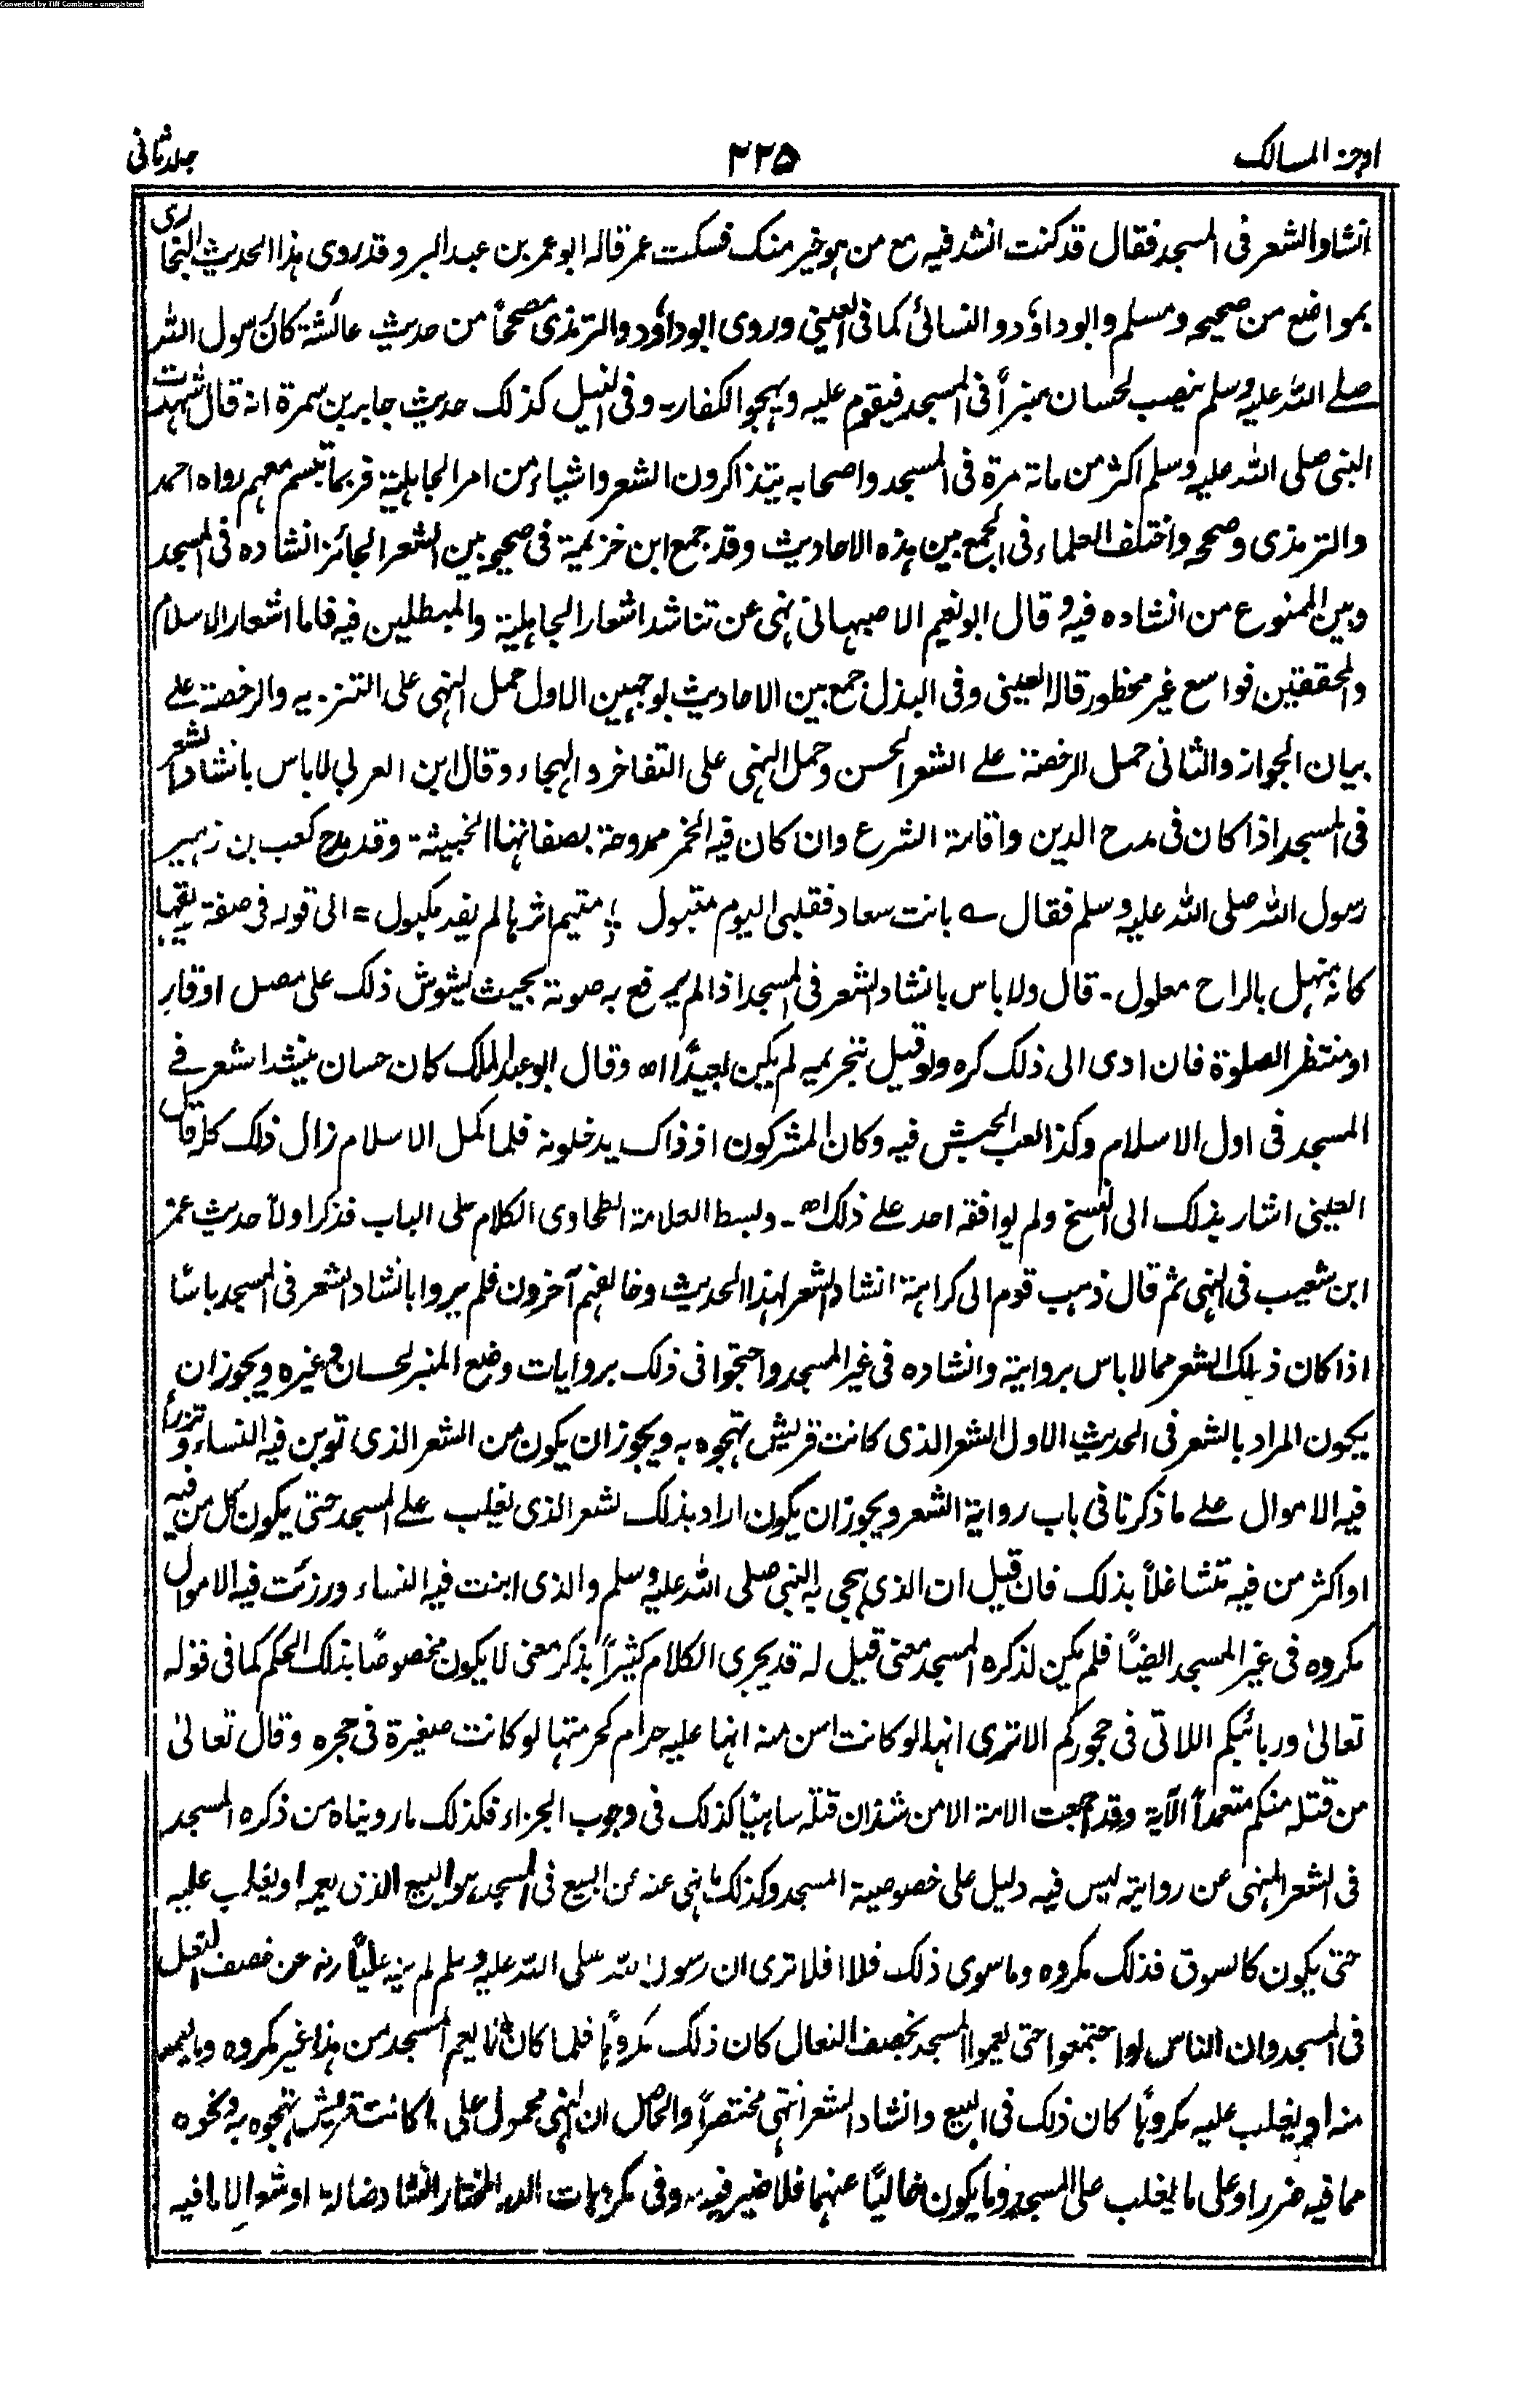 Converted by Tiff Combine - unregistered
اوجز المسالك
٢٢٥
جلد ثانى
انشاد الشعر فى المسجد فقال قد كنت انشد فيه مع من هو خير منك فسكت عمر قاله ابو عمر بن عبد البر و قد روى هذا الحديث البخارى
بمواضع من صحيحه ومسلم وابو داؤد و النسائى كما فى العينى وروى ابوداؤد والترمذى مصححاً من حديث عائشة كان رسول الله
صلى الله عليه وسلم ينصب لحسان منبراً فى المسجد فيقوم عليه ويهجو الكفار- وفى النيل كذلك حديث جابر بن سمرة انه قال شهدت
النبى صلى الله عليه وسلم اكثر من مائة مرة فى المسجد واصحابه يتذاكرون الشعر واشياء من امر الجاهلية فربما تبسم معهم رواه احمد
والترمذى وصححه واختلف العلماء فى الجمع بين هذه الاحاديث وقد جمع ابن خزيمة فى صحيحه بين الشعر الجائز انشاده فى المسجد
وبين الممنوع من انشاده فيه و قال ابو نعيم الاصبهانى نهى عن تناشد اشعار الجاهلية والمبطلين فيه فاما اشعار الاسلام
والمحققين فواسع غير محظور قاله العينى وفى البذل جمع بين الاحاديث بوجهين الاول حمل النهى على التنزيه والرخصة على
بيان الجواز والثانى حمل الرخصة على الشعر الحسن وحمل النهى على التفاخر والهجاء وقال ابن العربى لا باس بانشاد الشعر
فى المسجد اذا كان فى مدح الدين واقامة الشرع وان كان فيه الخمر ممدوحة بصفاتها الخبيثة وقد مدح كعب بن زهير
رسول الله صلى الله عليه وسلم فقال ؎ بانت سعاد فقلبى اليوم متبول ؛ متيم اثرها لم يفد مكبول = الى قوله فى صفة ريقها
كانه منهل بالراح معلول - قال ولا باس بانشاد الشعر فى المسجد اذا لم يرفع به صوته بحيث يشوش ذلك على مصل او قار
او منتظر الصلوة فان ادى الى ذلك كره ولو قيل بتحريمه لم يكن بعيداً اه وقال ابو عبد الملك كان حسان ينشد الشعر فى
المسجد فى اول الاسلام وكذا لعب الحبش فيه وكان المشركون اذ ذاك يدخلونه فلما كمل الاسلام زال ذلك كله قال
العينى اشار بذلك الى النسخ ولم يوافقه احد على ذلك اه - وبسط العلامة الطحاوى الكلام على الباب فذكر اولاً حديث عمرو
ابن شعيب فى النهى ثم قال ذهب قوم الى كراهة انشاد الشعر لهذا الحديث وخالفهم آخرون فلم يروا بانشاد الشعر فى المسجد باسًا
اذا كان ذلك الشعر مما لا باس بروايته وانشاده فى غير المسجد واحتجوا فى ذلك بروايات وضع المنبر لحسان و غيره ويجوز ان
يكون المراد بالشعر فى الحديث الاول الشعر الذى كانت قريش تهجوه به ويجوز ان يكون من الشعر الذى تؤبن فيه النساء و تزرأ
فيه الاموال على ما ذكرنا فى باب رواية الشعر ويجوز ان يكون اراد بذلك الشعر الذى يغلب على المسجد حتى يكون كل من فيه
او اكثر من فيه متشاغلاً بذلك فان قيل ان الذى هجى به النبى صلى الله عليه وسلم والذى ابنت فيه النساء ورزئت فيه الاموال
مكروه فى غير المسجد ايضًا فلم يكن لذكره المسجد معنى قيل له قد يجرى الكلام كثيراً بذكر معنى لا يكون مخصوصًا بذلك الحكم كما فى قوله
تعالى وربائبكم اللاتى فى حجوركم الا ترى انها لو كانت اسن منه انها عليه حرام كحرمتها لو كانت صغيرة فى حجره وقال تعالى
من قتله منكم متعمداً الآية وقد اجمعت الامة الا من شذ ان قتله ساهيًا كذلك فى وجوب الجزاء فكذلك ما رويناه من ذكره المسجد
فى الشعر المنهى عن روايته ليس فيه دليل على خصوصية المسجد وكذلك ما نهى عنه من البيع فى المسجد هو البيع الذى يعمه او يغلب عليه
حتى يكون كالسوق فذلك مكروه وما سوى ذلك فلا افلا ترى ان رسول الله صلى الله عليه وسلم لم ينه علياً رضـ عن خصف النعل
فى المسجد وان الناس لو اجتمعوا حتى يعموا المسجد بخصف النعال كان ذلك مكروهًا فلما كان ما لا يعم المسجد من هذا غير مكروه وما يعمه
منه او يغلب عليه مكروهًا كان ذلك فى البيع وانشاد الشعر انتهى مختصراً والحاصل ان النهى محمول على ما كانت قريش تهجوه به و نحوه
مما فيه ضرر او على ما يغلب على المسجد وما يكون خاليًا عنهما فلا ضير فيه - وفى مكروهات الدر المختار انشاد ضالة او شعر الا ما فيه